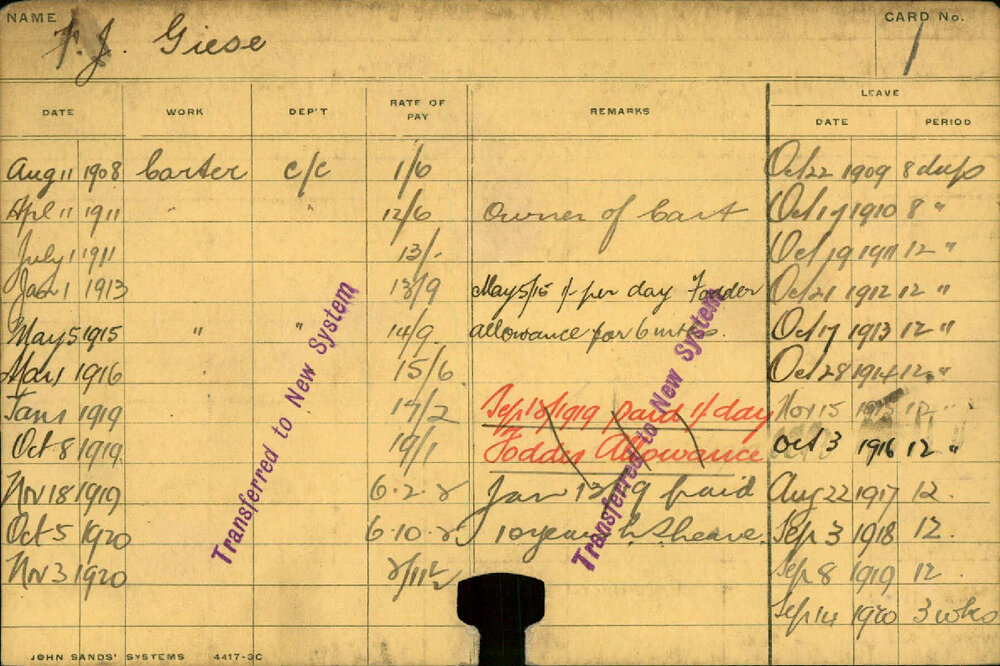 NAME F. J. Giese CARD No. 1
LEAVE
DATE WORK DEP'T RATE OF PAY REMARKS DATE PERIOD
Aug 11 1908 Carter C/C 1/6 Oct 22 1909 8 days
Apl 11 1911 " " 12/6 Owner of Cart Oct 17 1910 8 "
July 1 1911 13/- Oct 19 1911 12 "
Jan 1 1913 13/9 May 5/15 1/- per day Fodder Oct 21 1912 12 "
May 5 1915 " " 14/9 allowance for 6 mths. Oct 17 1913 12 "
1916 15/6 Oct 28 1914 12 "
Jan 1 1919 17/2 Sep 1919 paid 1/ day Nov 15 1915
Oct 8 1919 19/1 Fodder Allowance Oct 3 1916 12 "
Nov 18 1919 Jan 19 paid Aug 22 1917 12
Oct 5 1920 10 years Sep 3 1918 12
Nov 3 1920 Sep 8 1919 12
Sep 14 1920 3 wks
Transferred to New System
Transferred to New System
JOHN SANDS' SYSTEMS 4417-3C